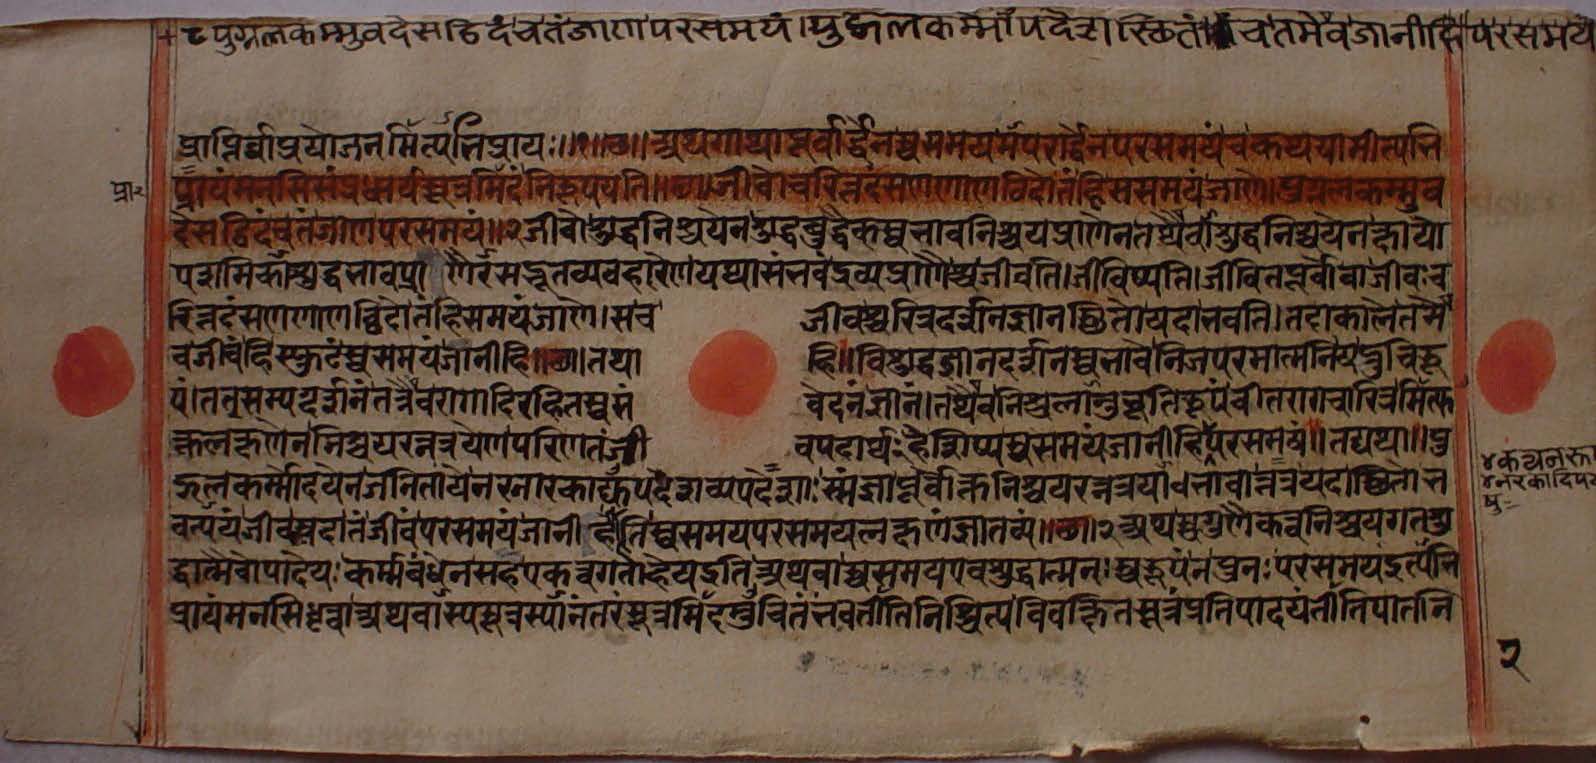 पुग्गलकम्मुवदेसट्ठिदं च तं जाण परसमयं। पुद्गलकर्म्मोपदेशस्थितं च तमेव जानीहि परसमयं
प्राप्तिर्वा प्रयोजनमित्यभिप्रायः॥१॥छ॥ अथ गाथापूर्वार्द्धेन स्वसमयमपरार्द्धेन परसमयं च कथयामीत्यभि
प्रायं मनसि संप्रधार्य सूत्रमिदं निरूपयति॥छ॥ जीवो चरित्तदंसणणाणट्ठिदो तं हि ससमयं जाणे। पुग्गलकम्मुव
देसट्ठिदं च तं जाण परसमयं॥२ जीवो शुद्धनिश्चयेन शुद्धबुद्धैकस्वभावनिश्चयप्राणेन तथैवाशुद्धनिश्चयेन क्षायो
पशमिकाशुद्धभावप्राणैरसद्भूतव्यवहारेण यथासंभवं द्रव्यप्राणैश्च जीवति। जीविष्यति। जीवितपूर्वो वा जीवः च
रित्तदंसणणाणट्ठिदो तं हि समयं जाणे। स च जीवश्चरित्रदर्शनज्ञानस्थितो यदा भवति। तदा काले तमे
व जीवं हि स्फुटं स्वसमयं जानीहि॥छ॥ तथा हि॥ विशुद्धज्ञानदर्शनस्वभावे निजपरमात्मनि यद्रुचिरू
पं। तत् सम्यग्दर्शनं तत्रैव रागादिरहितस्वसं वेदनं ज्ञानं। तथैव निश्चलानुभूतिरूपं वीतरागचारित्रमित्यु
क्तलक्षणेन निश्चयरत्नत्रयेण परिणतं जी वपदार्थं हे शिष्य स्वसमयं जानीहि परसमयं॥ तद्यथा॥ पु
द्गलकर्म्मोदयेन जनिता ये नरनारकाद्युपदेशव्यपदेशाः संज्ञा पूर्वोक्तनिश्चयरत्नत्रयाभावात्तत्र यदा स्थितो भ
वत्ययं जीवस्तदा तं जीवं परसमयं जानीहीति स्वसमयपरसमयलक्षणं ज्ञातव्यं॥छ॥२ अथ स्वगुणैकत्वनिश्चयगतशु
द्धात्मैवोपादेयः कर्म्मबंधेन सहैकत्वगतो हेय इति अथवा स्वसमय एव शुद्धात्मनः स्वरूपं न पुनः परसमय इत्यभि
प्रायं मनसि धृत्वा अथवास्य सूत्रस्यानंतरं सूत्रमिदमुचितं भवतीति निश्चित्य विवक्षितसूत्रं प्रतिपादयंतीति पातनि
२